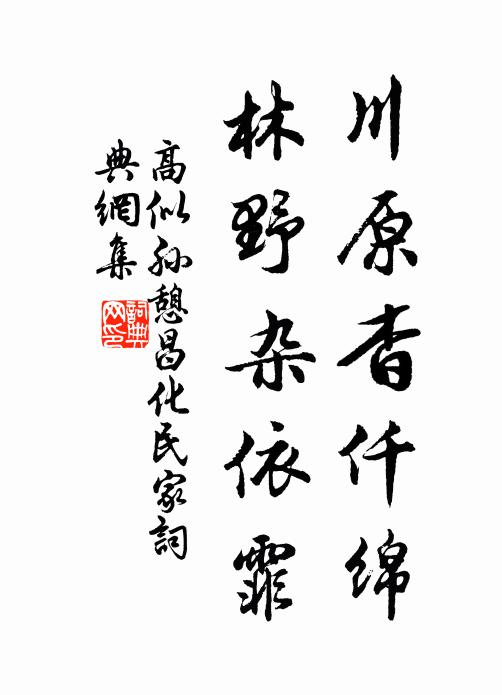 川原杳仟绵
林野杂依霏
高似孙憩昌化民家詞
典網集
詞典網印